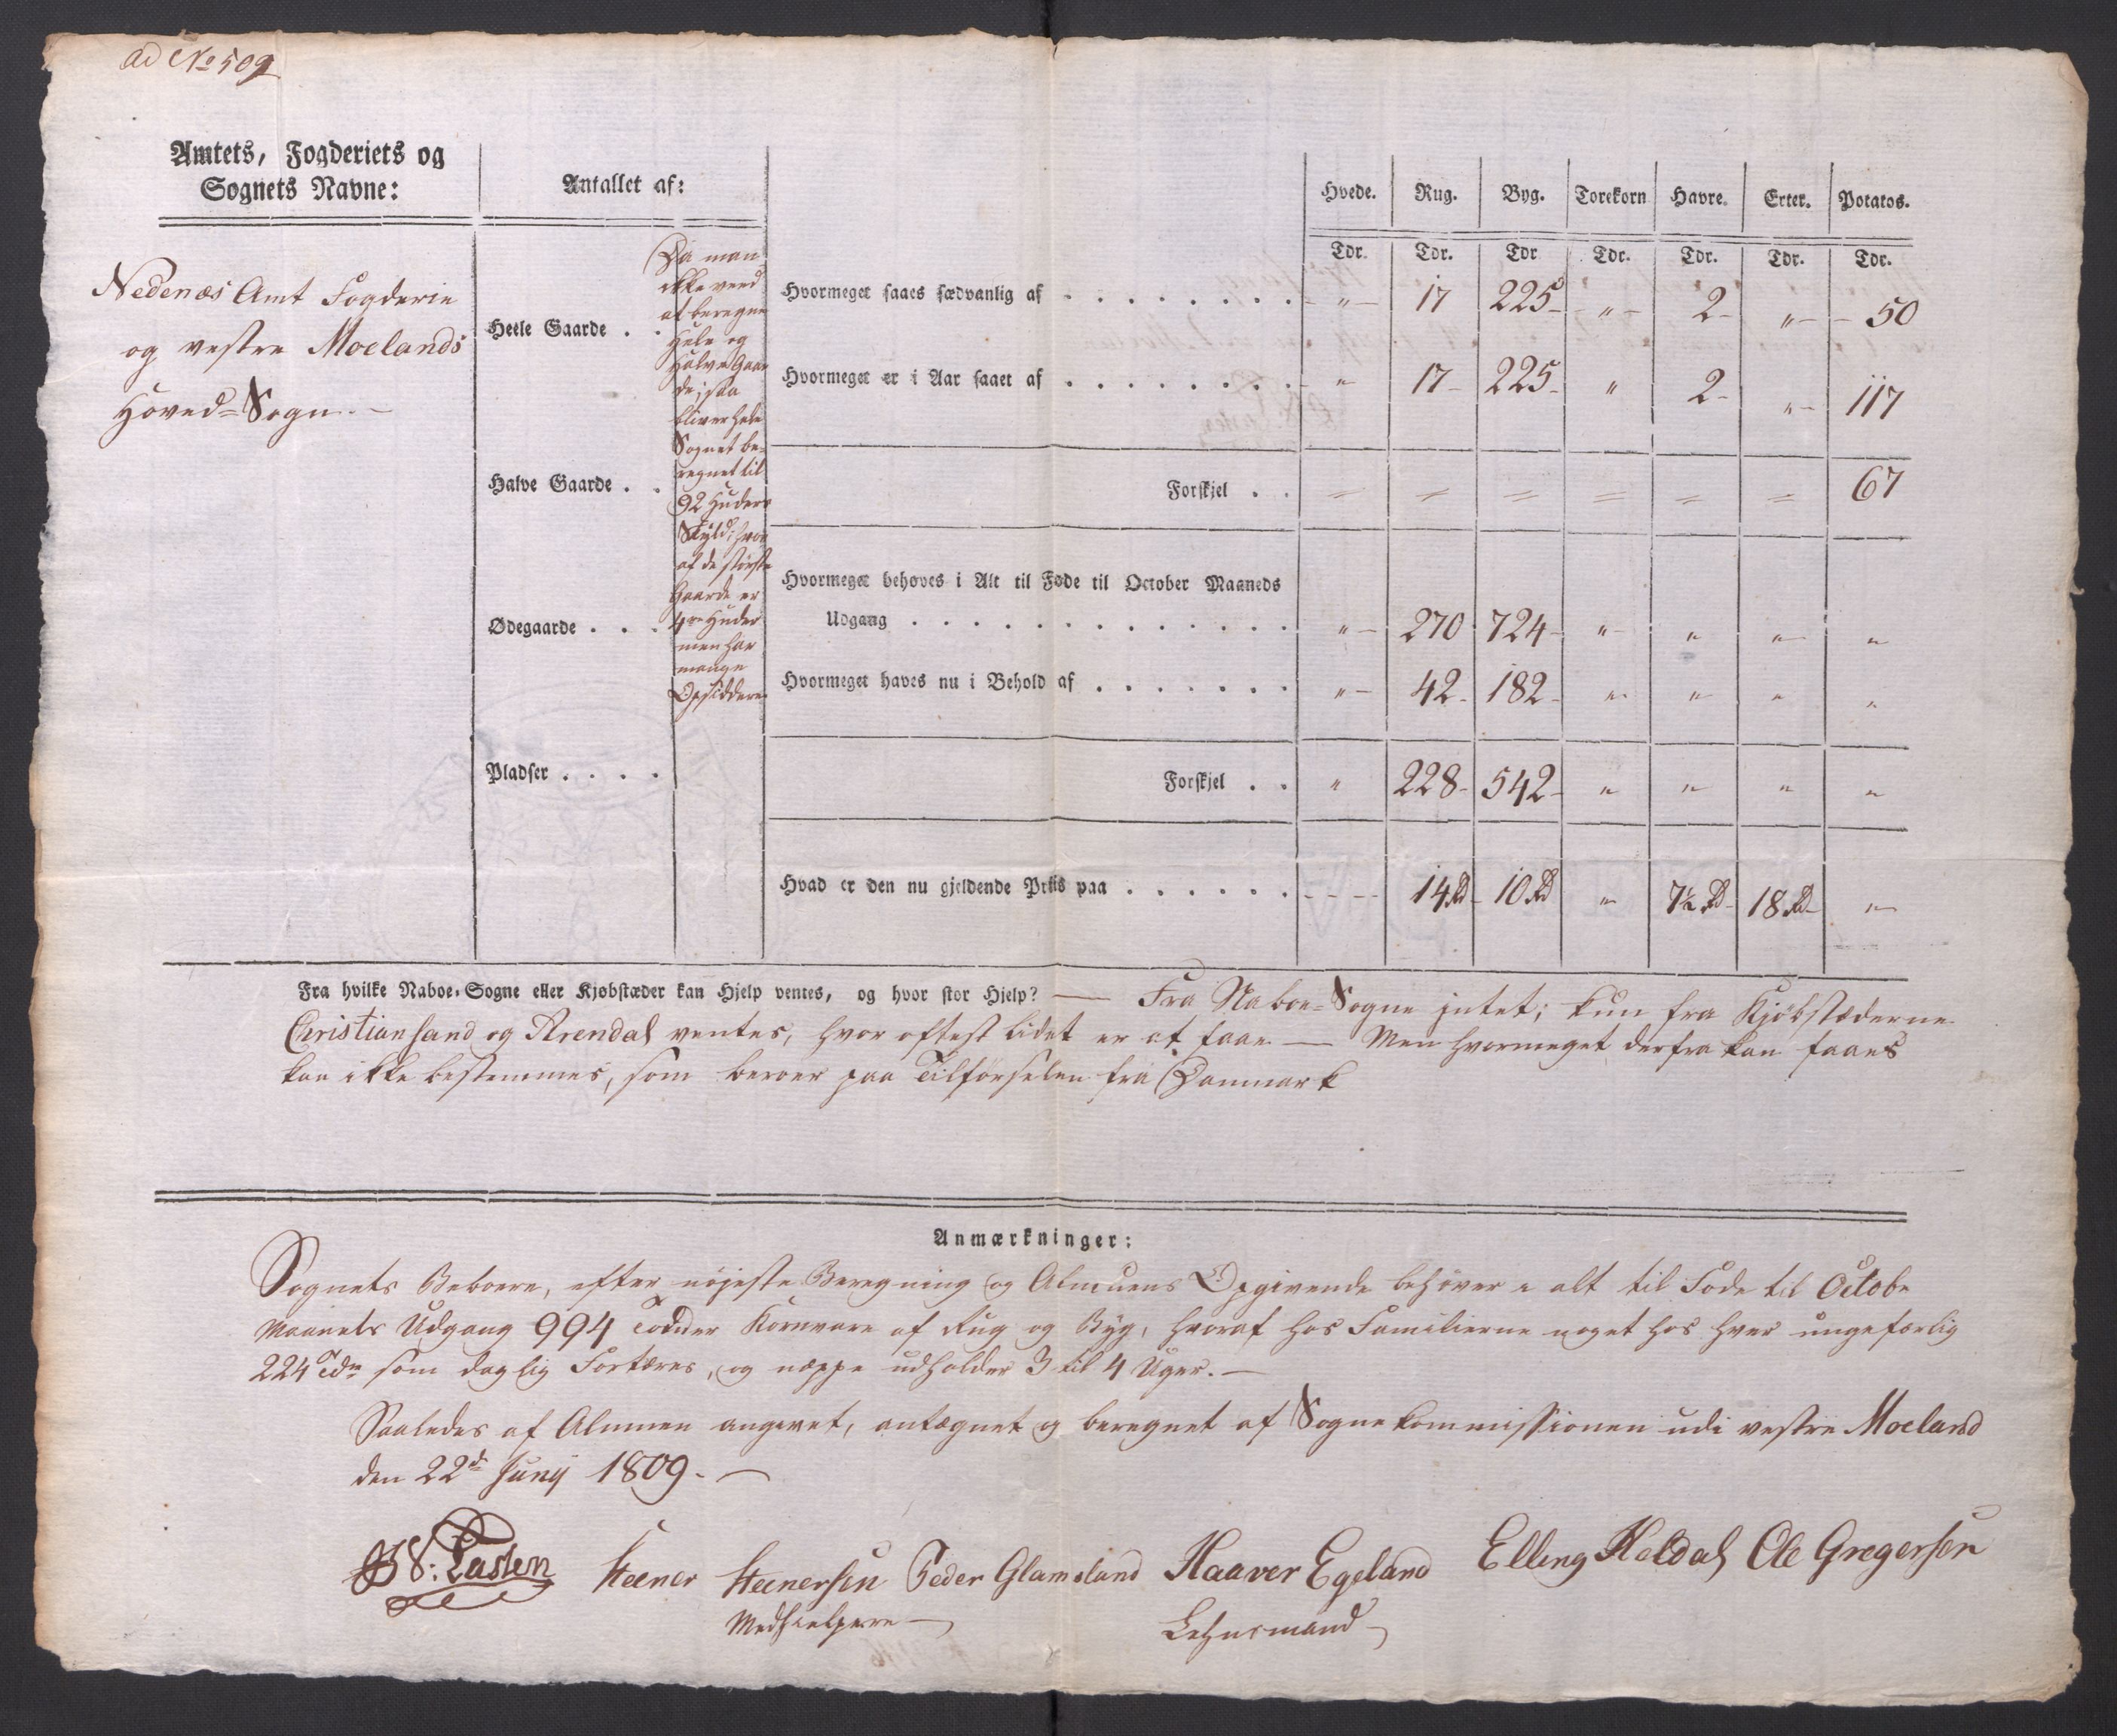 ad No 509
Amtets, Fogderiets og
Sognets Navne:
Antallet af:
Hvede. Rug. Byg. Torekorn Havre. Erter. Potatos.
Tdr. Tdr. Tdr Tdr. Tdr. Tdr. Tdr.
Nedenæs Amt Fogderie
og vestre Moelands
Hoved=Sogn. –
Heele Gaarde . .
Halve Gaarde . .
Ødegaarde . . .
Pladser . . . .
Da man
ikke veed
at beregne
Hele og
Halve Gaar
de; saa
bliver hele
Sognet be-
regnet til
92 Huders
Skyld; hvor
af de største
Gaarde er
4re Huder
men har
mange
Opsiddere
Hvormeget saaes sædvanlig af . . . . . . . . „ – 17 225 – „ – 2 – „ – – 50
Hvormeget er i Aar saaet af . . . . . . . . „ 17 – 225 – „ 2 – „ – 117
Forskjel . . = = = = = = 67
Hvormeget behoves i Alt til Føde til October Maaneds
Udgang . . . . . . . . . . . . . „ – 270 724 – „ – „ „ – „
Hvormeget haves nu i Behold af . . . . . . . „ – 42 – 182 – „ „ – „ „
Forskjel . . „ 228 – 542 – „ „ „ „
Hvad er den nu gjeldende Priis paa . . . . . . . - - - - 14 Rd – 10 Rd „ 7½ Rd – 18 Rd – „ –
Fra hvilke Naboe-Sogne eller Kjøbstæder kan Hjelp ventes, og hvor stor Hjelp? — Fra Naboe=Sogne intet; kun fra Kjøbstæderne
Christiansand og Arendal ventes, hvor oftest lidet er at faae. — Men hvormeget derfra kan faaes
kan ikke bestemmes, som beroer paa Tilførselen fra Danmark
Anmærkninger:
Sognets Beboere, efter nøjeste Beregning og Almuens Opgivende behøver i alt til Føde til Octobr
Maanets Udgang 994 Tønder Kornvare af Rug og Byg, hvoraf hos Familierne noget hos hver ungefærlig
224 Tdr som daglig Fortæres, og neppe udholder 3 til 4 Uger. —
Saaledes af Almuen angivet, antegnet og beregnet af Sognekommissionen udi vestre Moeland
den 22d Junij 1809. —
Lasten Steener Steenersen Peder Glamsland Haaver Egeland Elling Keldal Ole Gregersen
Medhielpere — Lehnsmand